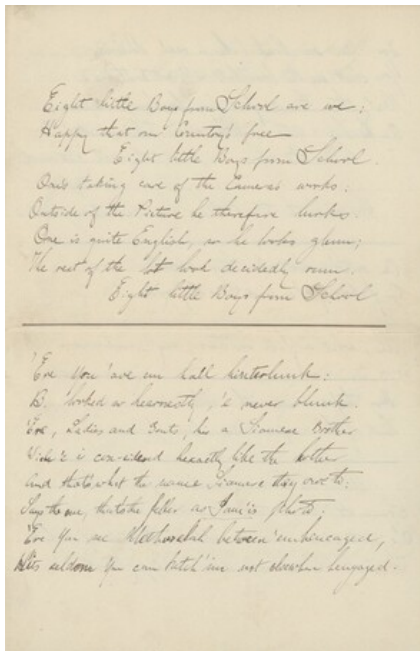 Eight little Boys from School are we;
Happy that our Country's free
Eight little Boys from School.
One's taking care of the Camera's works;
Outside of the Picture he therefore lurks.
One is quite English, so he looks glum;
The rest of the lot look decidedly rum.
Eight little Boys from School
'Ere you 'ave um hall
B. looked so hearnestly, 'e never blunk.
'Ere, Ladies and Gents, his a Siamese Brother
Vich is con-sidered hexactly like the hother
And that's what the name Siamese they owe to;
Says the one, that's the feller as photo;
'Ere you see between
seldom you can katch 'im not elsewhere hengaged.